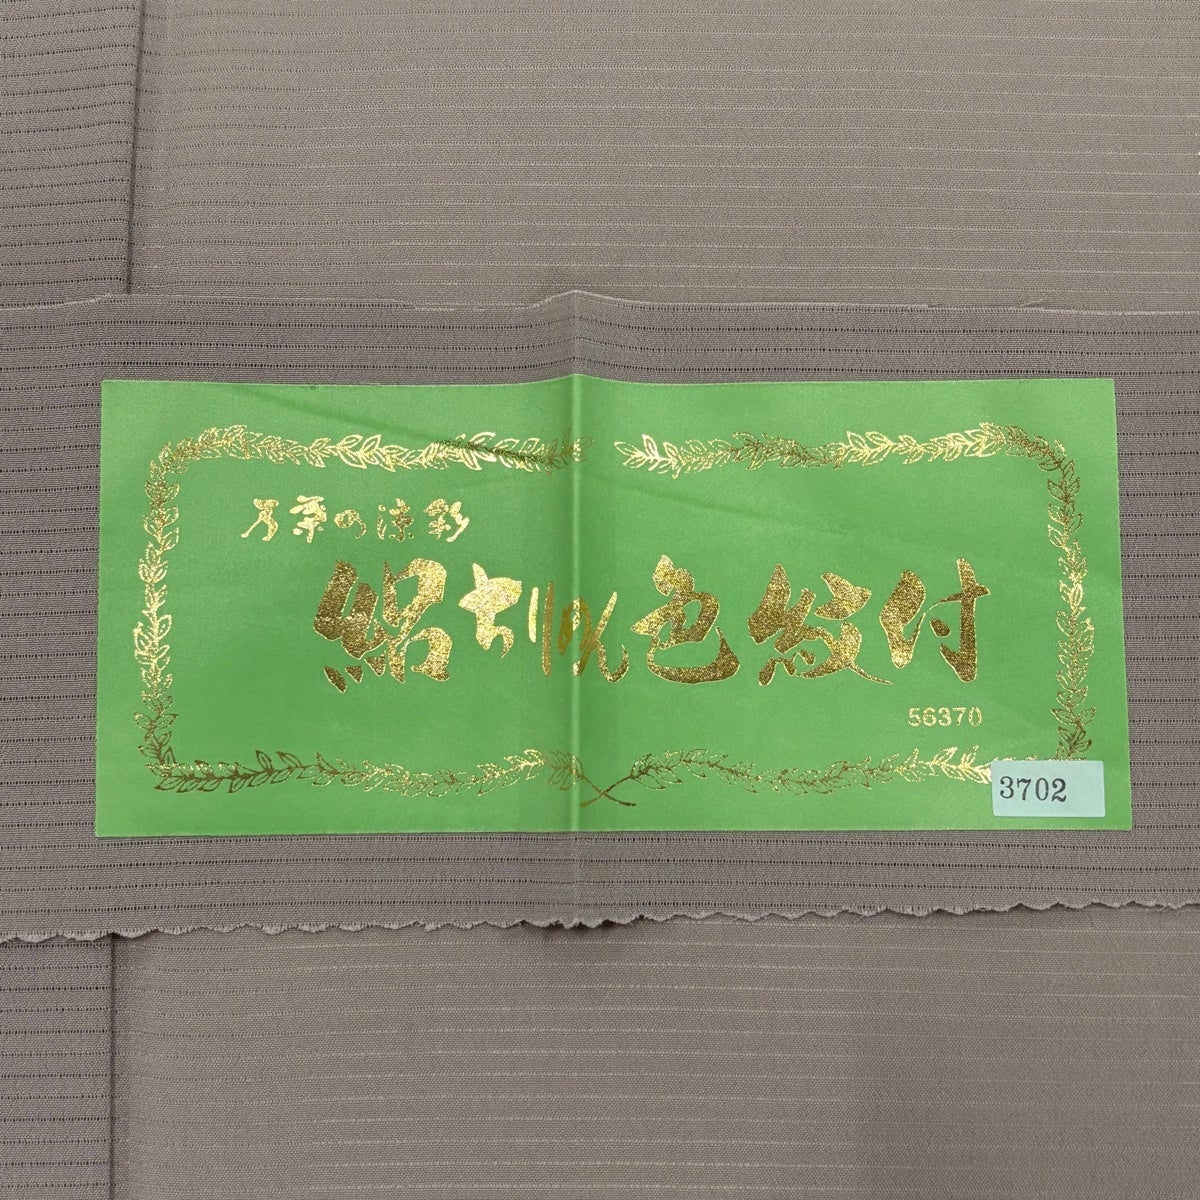 万葉の涼彩
絽ちりめん色紋付
56370
3702